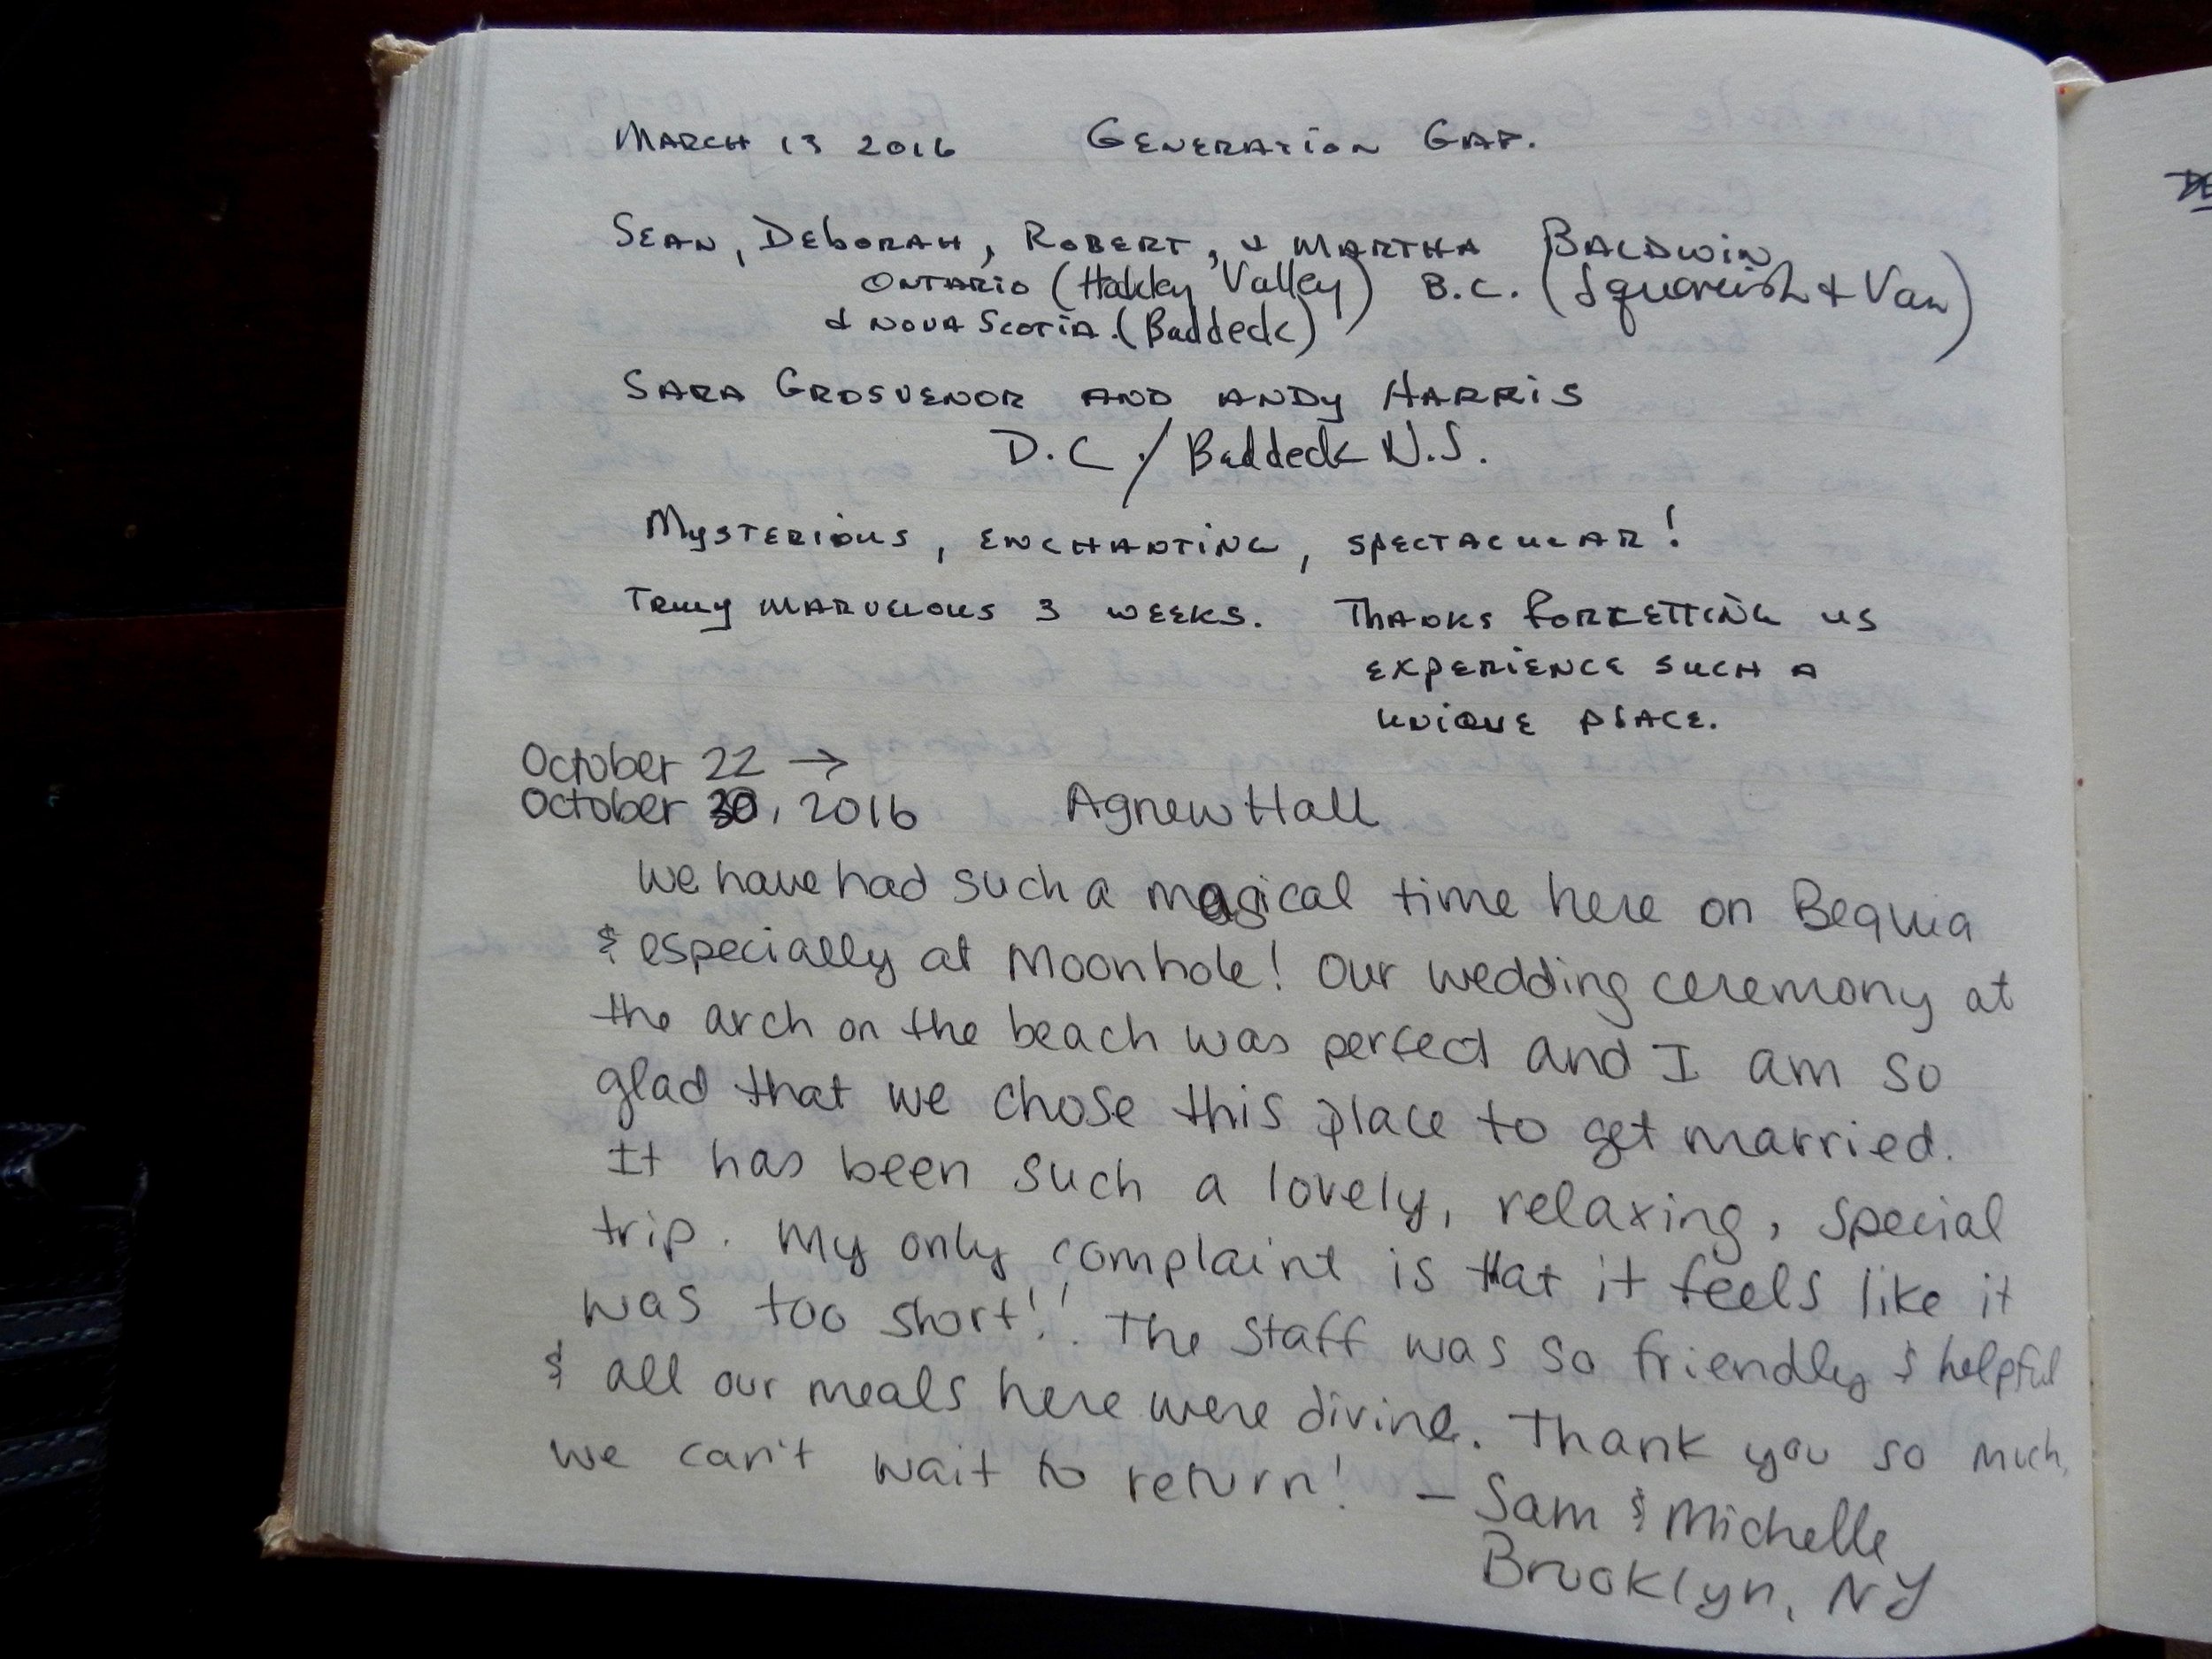 MARCH 13 2016 GENERATION GAP.
SEAN, DEBORAH, ROBERT, & MARTHA BALDWIN
ONTARIO (Hokley Valley) B.C. (Squamish & Van)
& NOVA SCOTIA. (Baddeck)
SARA GROSVENOR AND ANDY HARRIS
D.C./ Baddeck N.S.
MYSTERIOUS, ENCHANTING, SPECTACULAR!
TRULY MARVELOUS 3 WEEKS. THANKS FOR LETTING US
EXPERIENCE SUCH A
UNIQUE PLACE.
October 22 →
October 30, 2016 Agnew Hall
We have had such a magical time here on Bequia
& especially at Moonhole! Our wedding ceremony at
the arch on the beach was perfect and I am so
glad that we chose this place to get married.
It has been such a lovely, relaxing, special
trip. My only complaint is that it feels like it
was too short!! The staff was so friendly & helpful
& all our meals here were divine. Thank you so much,
we can't wait to return! - Sam & Michelle
Brooklyn, NY